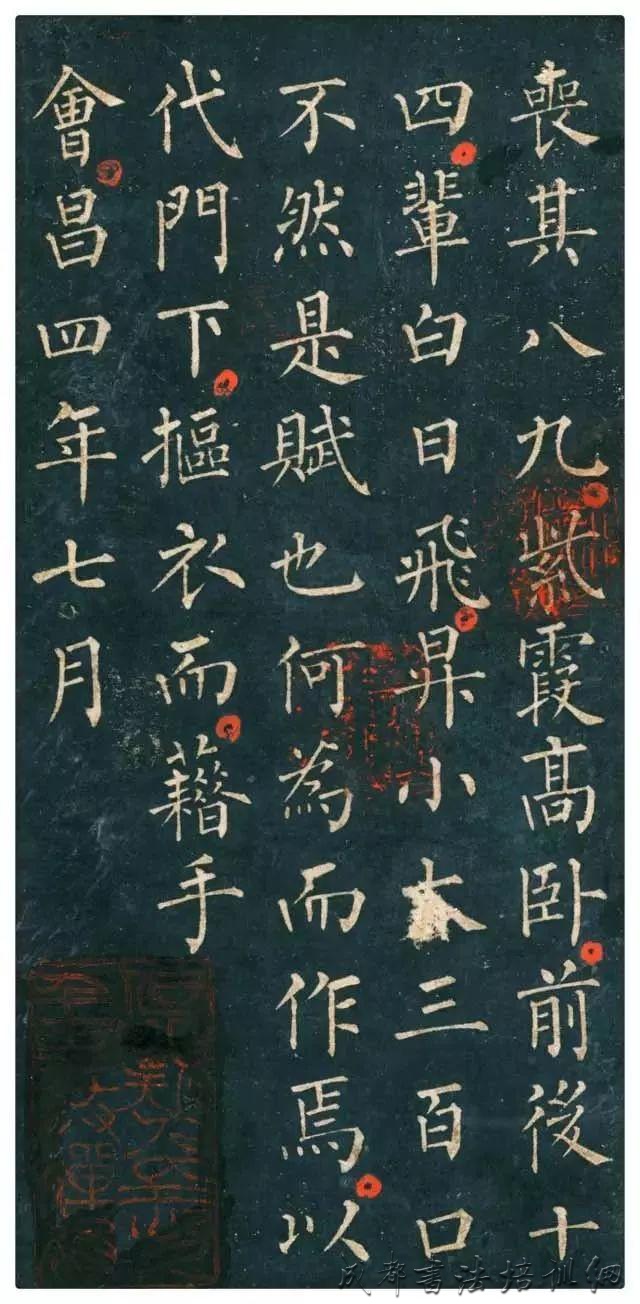 喪其八九紫霞高卧前後十
四輩白日飛昇小大三百口
不然是賦也何為而作焉以
代門下摳衣而藉手
會昌四年七月
成都書法培訓網